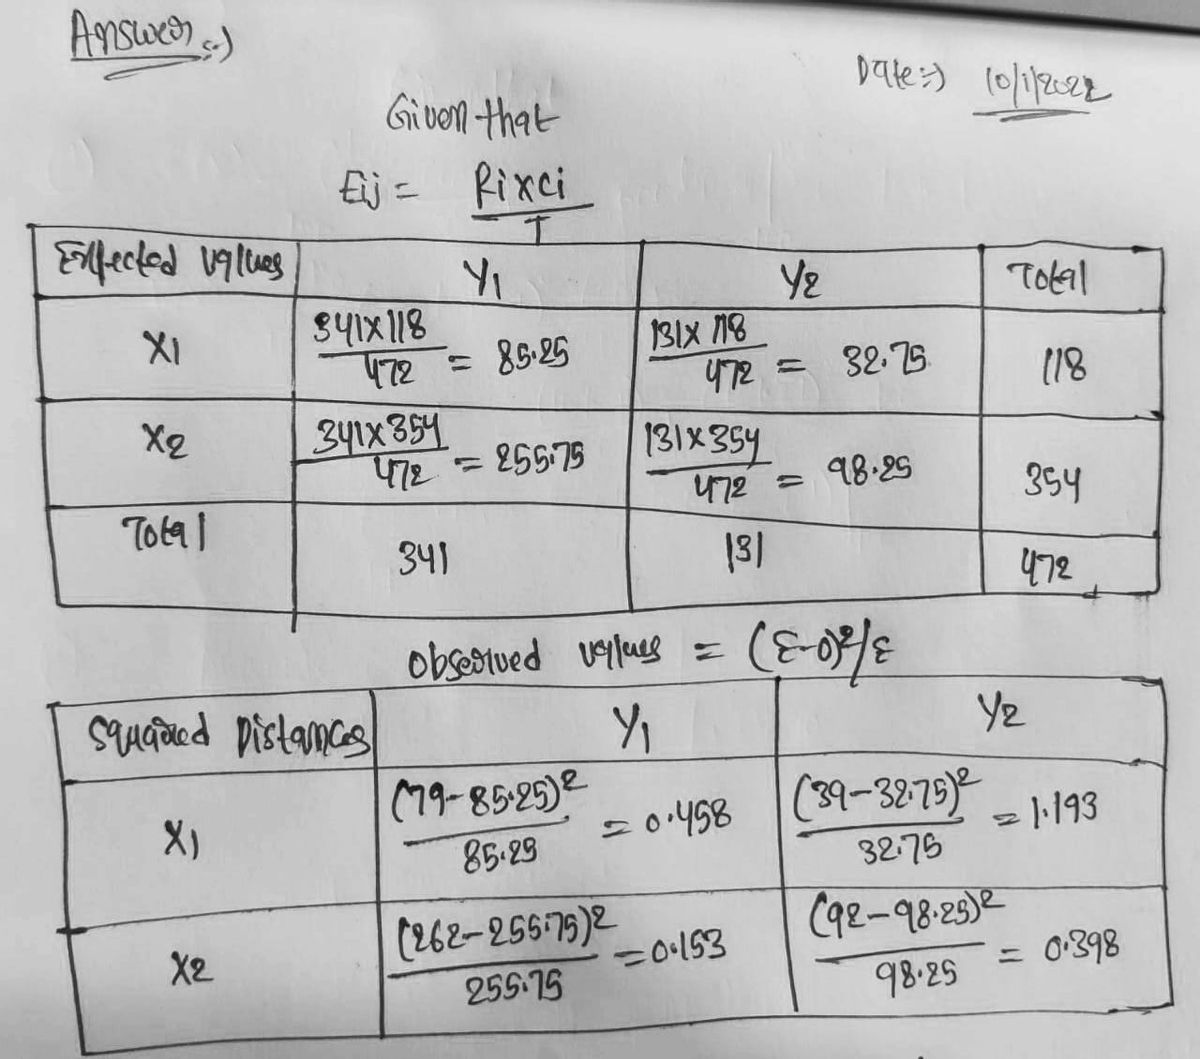 Answer :-)
Date :-) 10/1/2022
Given that
Eij = Ri x ci / T
Expected values Y1 Y2 Total
X1 341 x 118 / 472 = 85.25 131 x 118 / 472 = 32.75 118
X2 341 x 354 / 472 = 255.75 131 x 354 / 472 = 98.25 354
Total 341 131 472
Observed values = (E-O)²/E
Squared Distances Y1 Y2
X1 (79-85.25)² / 85.25 = 0.458 (39-32.75)² / 32.75 = 1.193
X2 (262-255.75)² / 255.75 = 0.153 (92-98.25)² / 98.25 = 0.398